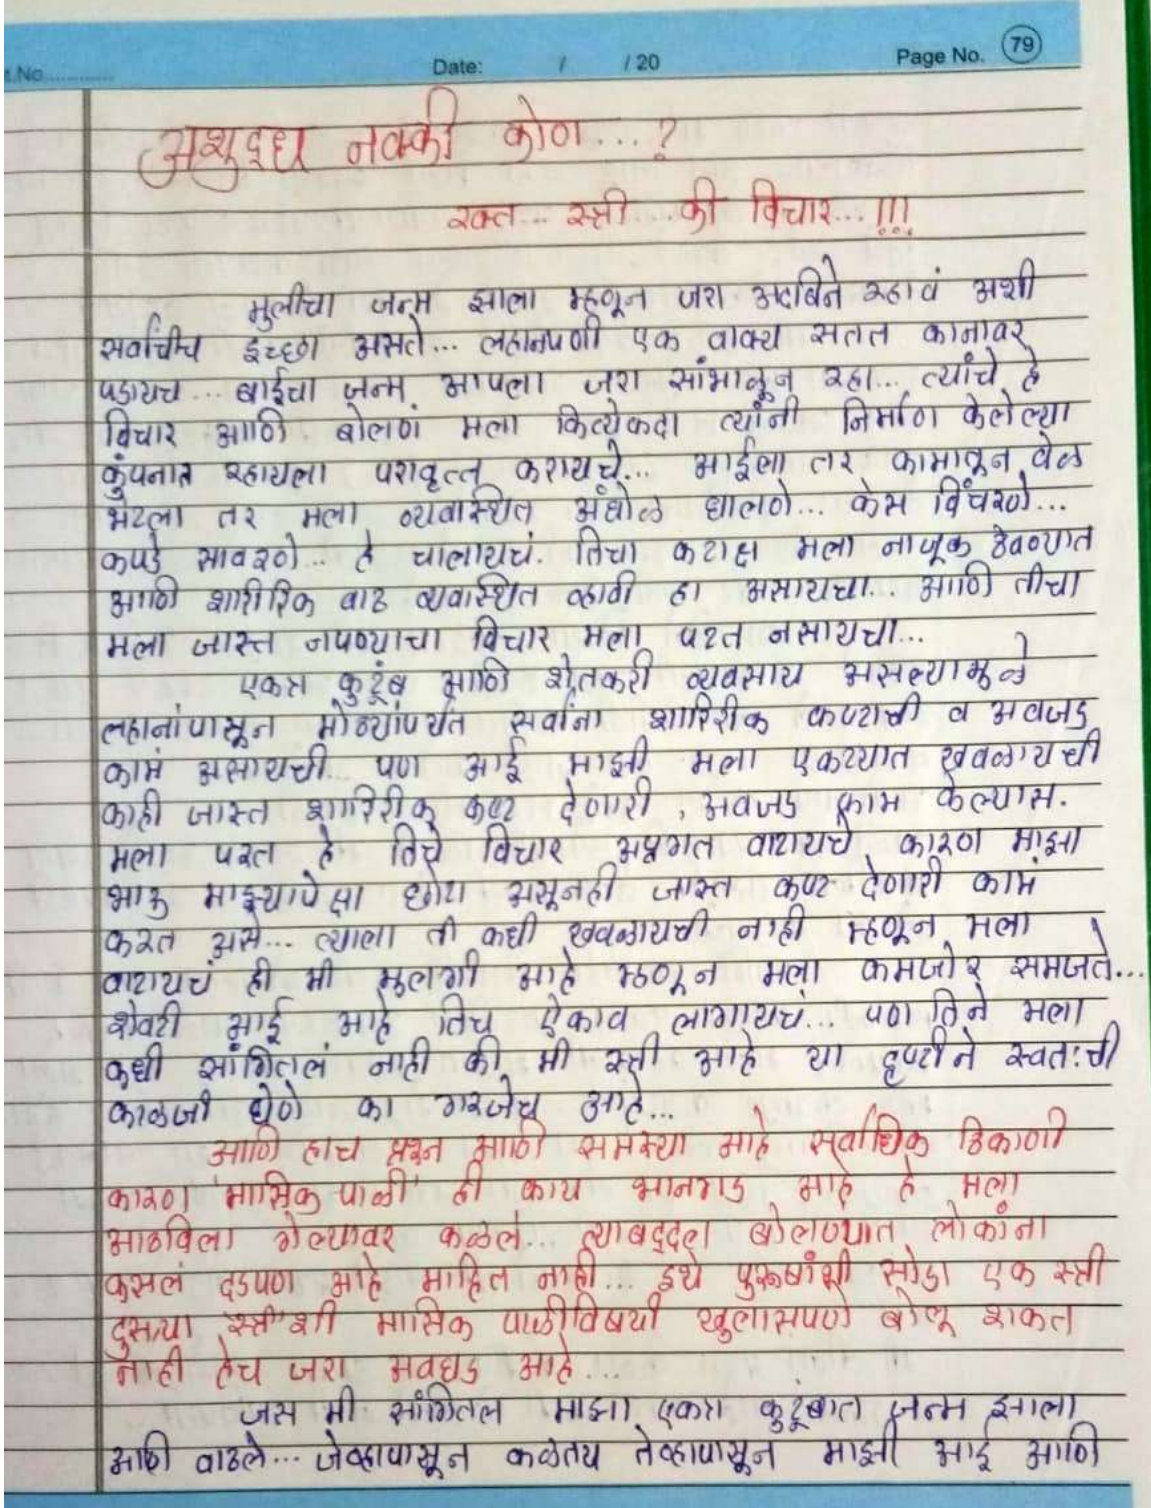 t.No............
Date: / / 20
Page No. 79
अशुद्ध नक्की कोण...?
रक्त... स्त्री... की विचार...!!!
मुलीचा जन्म झाला म्हणून जरा अदबिने रहावं अशी
सर्वांचीच इच्छा असते... लहानपणी एक वाक्य सतत कानावर
पडायच... बाईचा जन्म आपला जरा सांभाळून रहा... त्यांचे हे
विचार आणि बोलणं मला कित्येकदा त्यांनी निर्माण केलेल्या
कुंपनात रहायला परावृत्त करायचे... आईला तर कामातून वेळ
भेटला तर मला व्यवास्थित अंघोळ घालणे... केस विंचरणे...
कपडे सावरणे... हे चालायचं. तिचा कटाक्ष मला नाजूक ठेवण्यात
आणि शारीरिक वाढ व्यवास्थित व्हावी हा असायचा... आणि तीचा
मला जास्त जपण्याचा विचार मला पटत नसायचा...
एकत्र कुटूंब आणि शेतकरी व्यवसाय असल्यामुळे
लहानांपासून मोठ्यांपर्यंत सर्वांना शारिरीक कष्टाची व अवजड
कामं असायची... पण आई माझी मला एकट्यात खवळायची
काही जास्त शारिरीक कष्ट देणारी, अवजड काम केल्यास.
मला परत हे तिचे विचार अप्रगत वाटायचे कारण माझा
भाऊ माझ्यापेक्षा छोटा असूनही जास्त कष्ट देणारी कामं
करत असे... त्याला ती कधी खवळायची नाही म्हणून मला
वाटायचं ही मी मुलगी आहे म्हणून मला कमजोर समजते...
शेवटी आई आहे तिच ऐकाव लागायचं... पण तिने मला
कधी सांगितलं नाही की मी स्त्री आहे या दृष्टीने स्वतःची
काळजी घेणे का गरजेच आहे...
आणि हाच प्रश्न आणि समस्या आहे सर्वाधिक ठिकाणी
कारण 'मासिक पाळी' ही काय भानगड आहे हे मला
आठविला गेल्यावर कळलं... त्याबद्दल बोलण्यात लोकांना
कसलं दडपण आहे माहित नाही... इथे पुरूषांशी सोडा एक स्त्री
दुसऱ्या स्त्री शी मासिक पाळीविषयी खुलासपणे बोलू शकत
नाही हेच जरा अवघड आहे...
जस मी सांगितल माझा एकत्र कुटूंबात जन्म झाला
आणि वाढले... जेव्हापासून कळतय तेव्हापासून माझी आई आणि